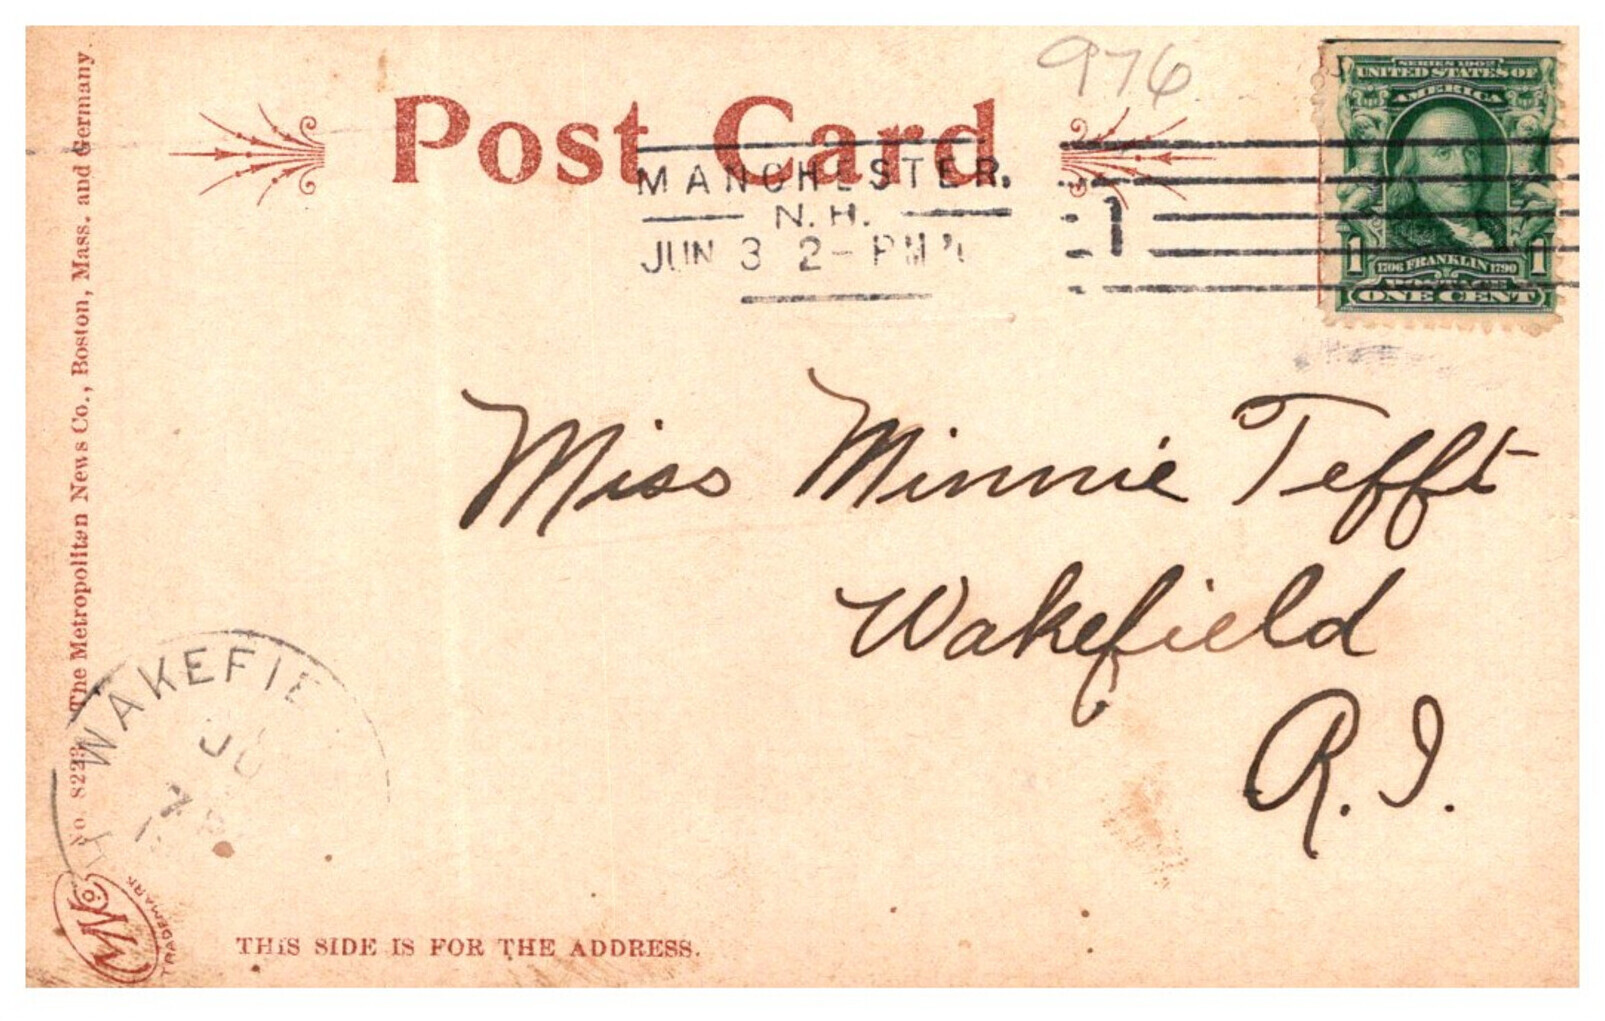 976
Post Card
SERIES 1902
UNITED STATES OF
AMERICA
MANCHESTER,
N.H.
JUN 3 2-PM
1
1 1706 FRANKLIN 1790 1
POSTAGE
ONE CENT
Miss Minnie Tefft
Wakefield
R.I.
No. 8223 The Metropolitan News Co., Boston, Mass. and Germany.
WAKEFIE
JU
7
TRADEMARK
THIS SIDE IS FOR THE ADDRESS.